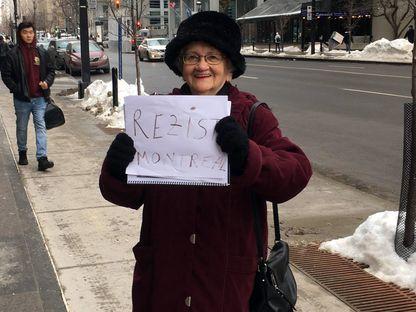 REZIST
MONTREAL